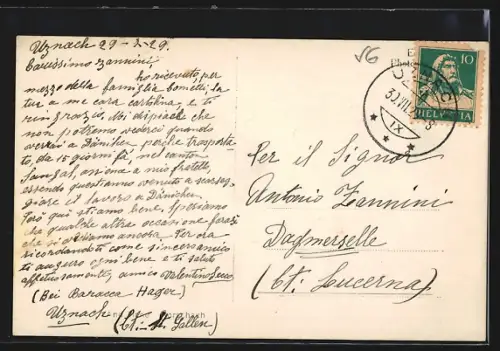 Uznach 29-7-29.
Carissimo Zannini,
ho ricevuto, per
mezzo della famiglia Bonetti, la
tua a me cara cartolina, e ti
ringrazio. Mi dispiace che
non potremo vederci quando
verrai a Däniken, perchè
to, da 15 giorni fa, nel canton
Sangal, mio fratello,
essendo quest'anno venuto a
giare il lavoro a Däniken.
Però qui stiamo bene. Speriamo
che qualche altra occasione forse
che ci vediamo ancora. Per ora
ricordandoti come sincero amico
ti auguro ogni bene e ti saluto
affettuosamente, amico Valentino
(Bei Baracca Hager)
Uznach (Ct. St. Gallen)
56
10
HELVETIA
IX
Per il Signor
Antonio Zannini
Dagmerselle
(Ct. Lucerna)